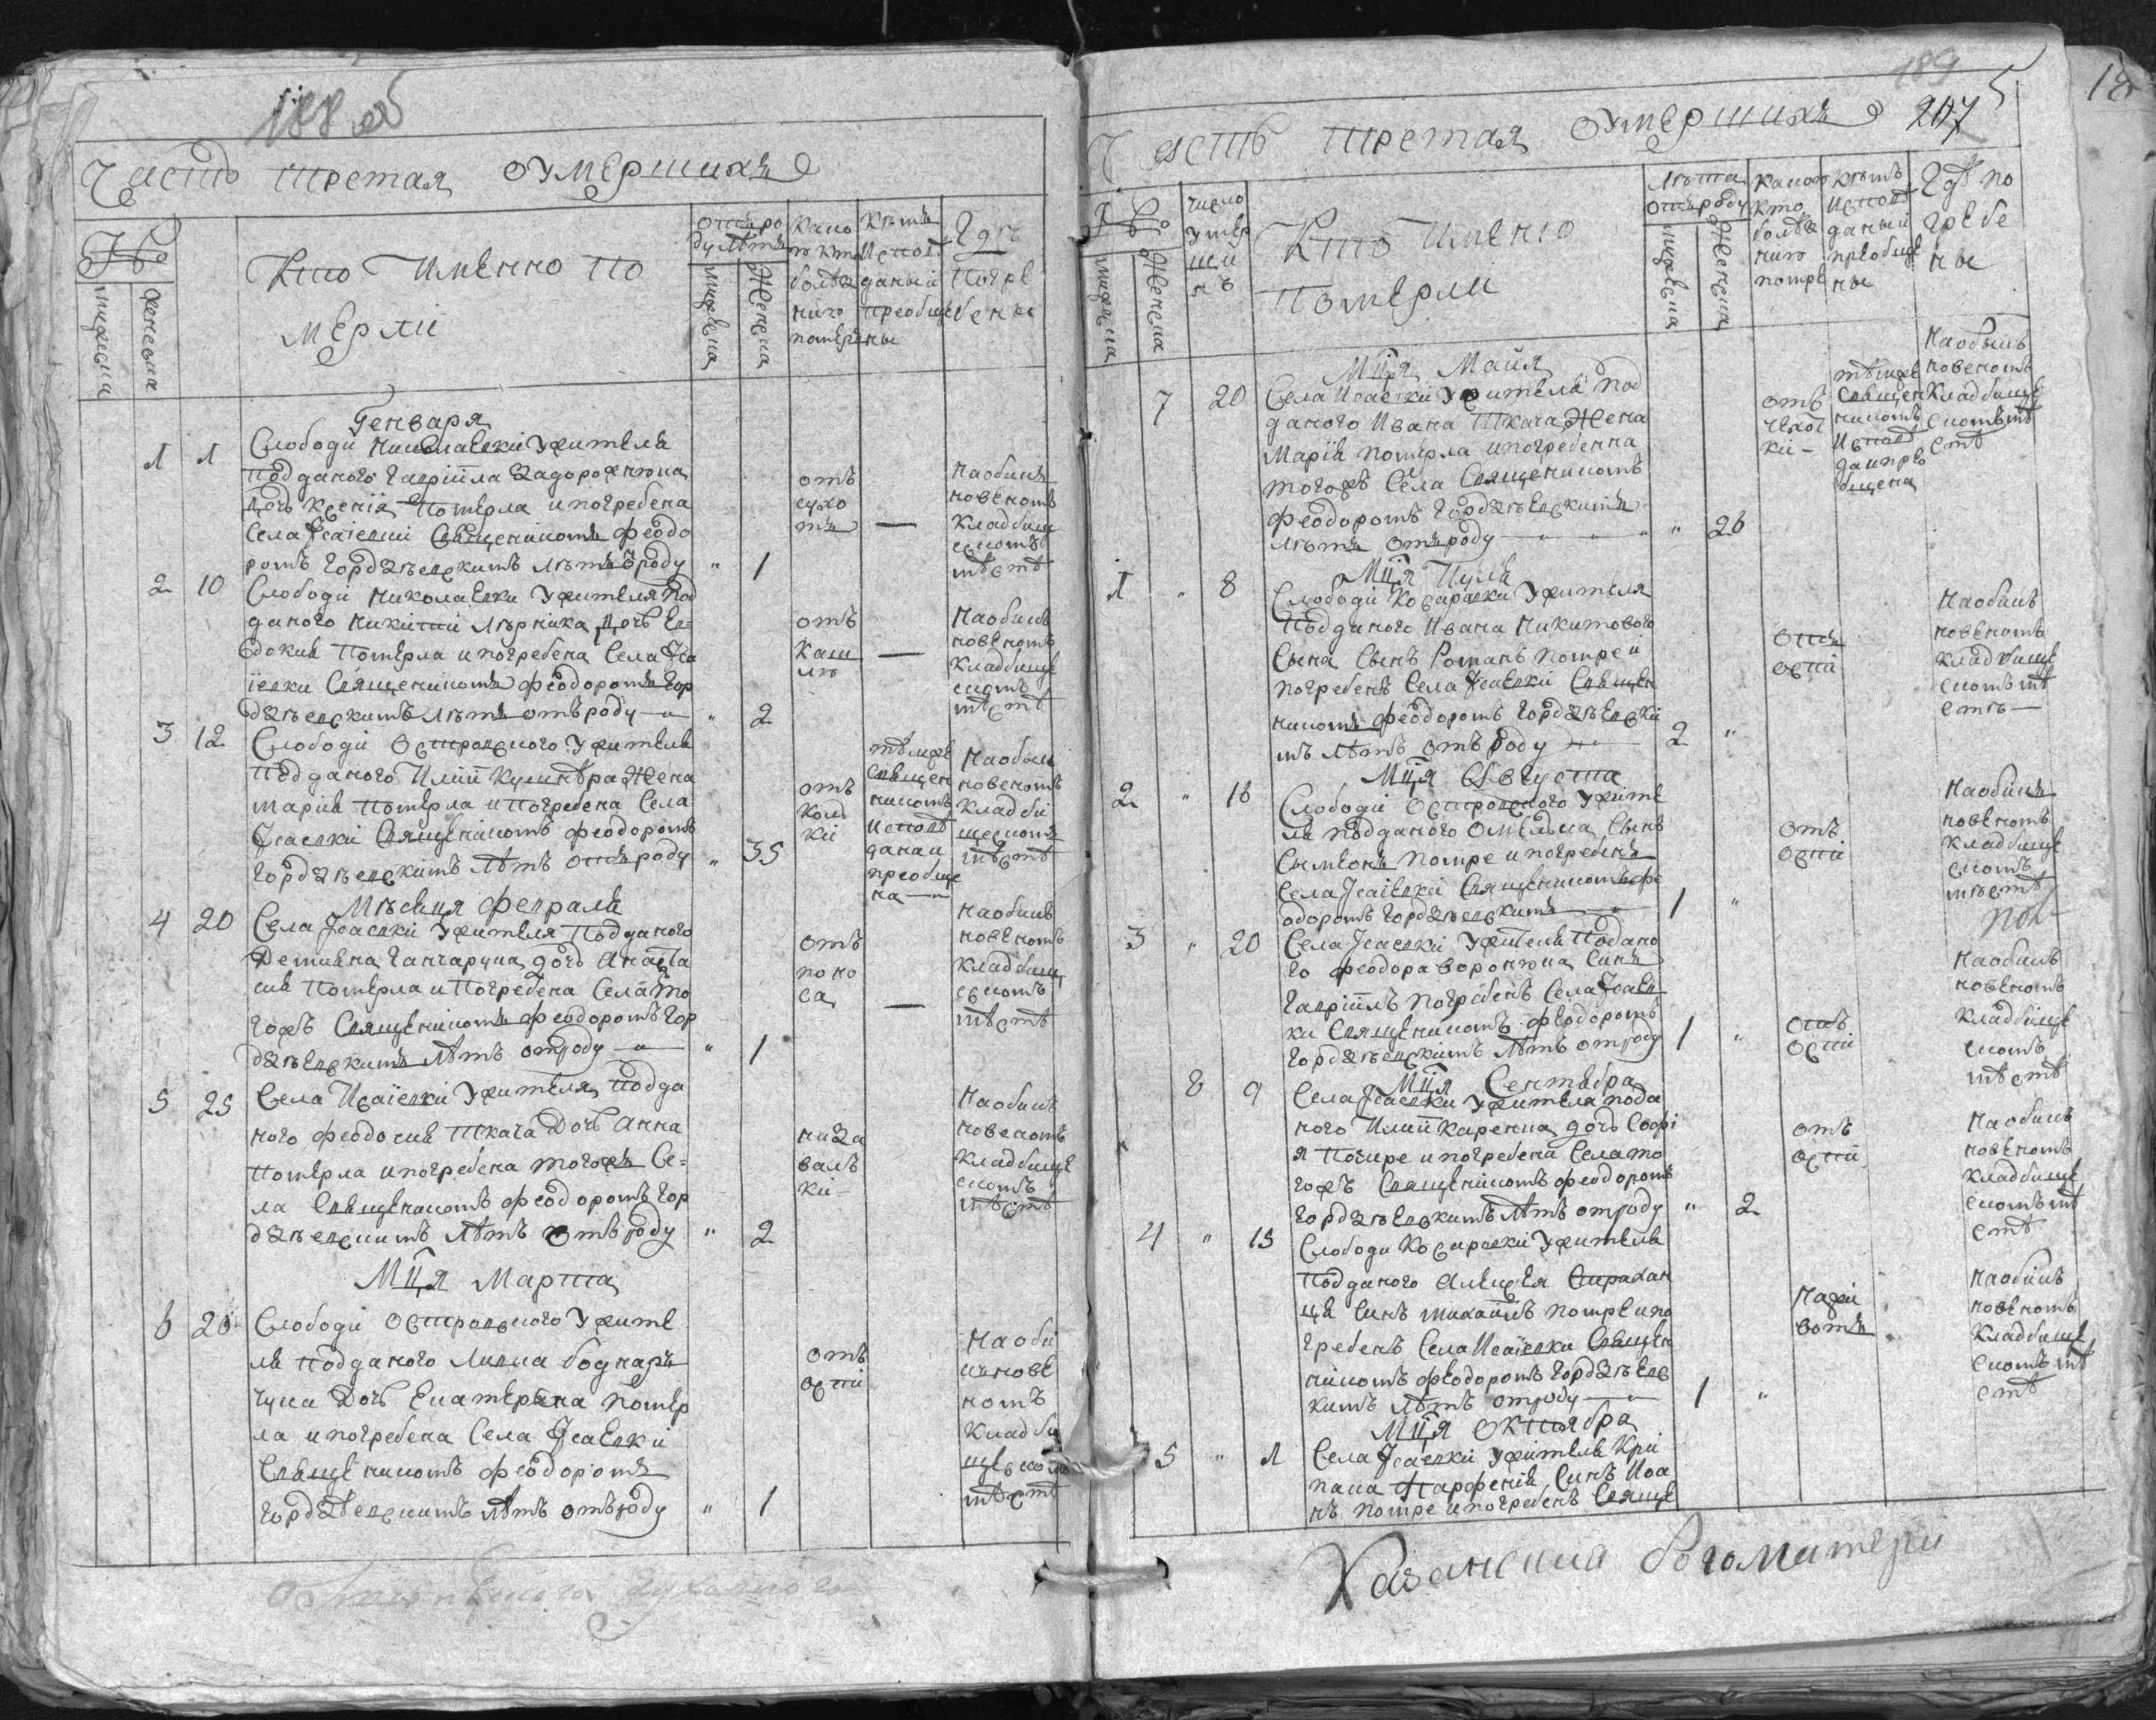 188 об
Часть третая оумершихъ
№
мужеска
женска
Кто Именно по
мерлі
отъ ро
ду Лѣтъ
мужеска
женска
Како
ю кто
болѣз
нию
помер
Кѣмъ
Испов
даный
приобще
ны
Гдѣ
Погре
бены
Генваря
1 1 Слободи Николаевкі Ужителя
подданого Гавріила Задорожнюка
дочь Ксенія Померла и погребена
Села Ісаіевки Священикомъ Феодо
ромъ Гордзѣевскимъ Лѣтъ Ѿроду " 1
отъ
сухо
ты
—
Наобык
новеномъ
Кладбищ
енскомъ
мѣстѣ
2 10 Слободи Николаевки Ужителя Под
даного Никитии Лѣрника Дочь Ев=
докия Померла и погребена Села Іса
іевки Священикомъ Феодоромъ Гор
дзѣевскимъ Лѣтъ отъ роду — " 2
отъ
Каш
лю
—
Наобык
новеномъ
Кладбище
нскомъ
мѣстѣ
3 12 Слободи Островского Ужителя
Подданого Илии Кушнѣра Жена
Мария Померла и Погребена Села
Ісаевкі Священикомъ Феодоромъ
Гордзѣевскимъ Лѣтъ отъ роду " 35
отъ
коль
кі
тѣмже
Священ
никомъ
Испов
дана и
преобще
на —
Наобык
новеномъ
Кладби
щескомъ
мѣстѣ
Мѣсяця Февраля
4 20 Села Ісаевкі Ужителя Подданого
Гончарука дочь Анаста
сия Померла и Погребена Села То
гожъ Священикомъ Феодоромъ Гор
дзѣевскимъ Лѣтъ отроду — " 1
отъ
поно
са
—
Наобык
новеномъ
Кладбищ
скомъ
мѣстѣ
5 25 Села Исаіевкі Ужителя Подда
ного Феодосия Ткача Дочь Анна
Померла и погребена тогожъ Се=
ла Священикомъ Феодоромъ Гор
дзѣевскимъ Лѣтъ отъ роду " 2
Наобык
новеномъ
Кладбище
скомъ
мѣстѣ
Мця Марта
6 20 Слободи Островского Ужите
ля Подданого Лукиа Боднар
чука Дочь Екатерина Помер
ла и погребена Села Ісаевкі
Священикомъ Феодоромъ
Гордзѣевскимъ Лѣтъ отъ роду " 1
отъ
оспи
Наобы
кнове
номъ
Кладби
щескомъ
мѣстѣ
189
207
Часть третая оумершихъ
№
мужеска
женска
число
умер
ший
хъ
Кто именно
Померли
Лѣта
отъ роду
мужеска
женска
Какою
кто
болѣз
нию
помре
Кѣмъ
Исповѣ
даный
приобще
ны
Гдѣ по
гребе
ны
Мця Майя
7 20 Села Исаевки Ужителя Под
даного Ивана Ткача Жена
Марія померла и погребенна
тогожъ Села Священикомъ
Феодоромъ Гордзѣевскимъ
лѣтъ отъ роду — " 26
отъ
чехот
ки —
тѣмже
Священ
никомъ
Исповѣ
да и при
общена
Наобыкъ
новеномъ
Кладбище
скомъ мѣ
стѣ
Мця Иуля
1 " 8 Слободи Косаревки Ужителя
Подданого Ивана Никитового
Сына Сынъ Романъ помре и
погребенъ Села Ісаевки Священ
никомъ Феодоромъ Гордзѣевскі
мъ Лѣтъ отъ роду — 2 "
отъ
оспи
Наобык
новеномъ
кладбище
скомъ мѣ
стѣ —
Мця Августа
2 " 16 Слободи Островского Ужите
ля подданого Сынъ
Симеонъ помре и погребенъ
Села Ісаіевкі Священикомъ Фе
одоромъ Гордзѣевскимъ — 1 "
отъ
оспи
Наобыкъ
новеномъ
кладбище
скомъ
мѣстѣ
3 " 20 Села Ісаевкі Ужителя Поддано
го Феодора Воронюка Синъ
Гавріилъ погребенъ Села Ісаев
ки Священикомъ Феодоромъ
Гордзѣевскимъ Лѣтъ отроду 1 "
отъ
оспи
Наобыкъ
новеномъ
Кладбище
скомъ
мѣстѣ
Мця Сентебра
8 9 Села Ісаевки Ужителя подда
ного Илии дочь Софі
я Помре и погребена Села то
гожъ Священикомъ Феодоромъ
Гордзѣевскимъ Лѣтъ отроду " 2
отъ
оспи
Наобыкъ
новеномъ
кладбище
скомъ мѣ
стѣ
4 " 15 Слободи Косаревкі Ужителя
Подданого Алексея
ця Синъ Михаилъ помре и по
гребенъ Села Исаіевки Священ
никомъ Феодоромъ Гордзѣевс
кимъ Лѣтъ отроду — 1 "
Наобыкъ
новеномъ
Кладбище
скомъ мѣ
стѣ
Мця Октиабра
5 " 1 Села Ісаевкі Ужителя
Парфения Синъ Иоа
нъ помре и погребенъ Священ
Богоматери